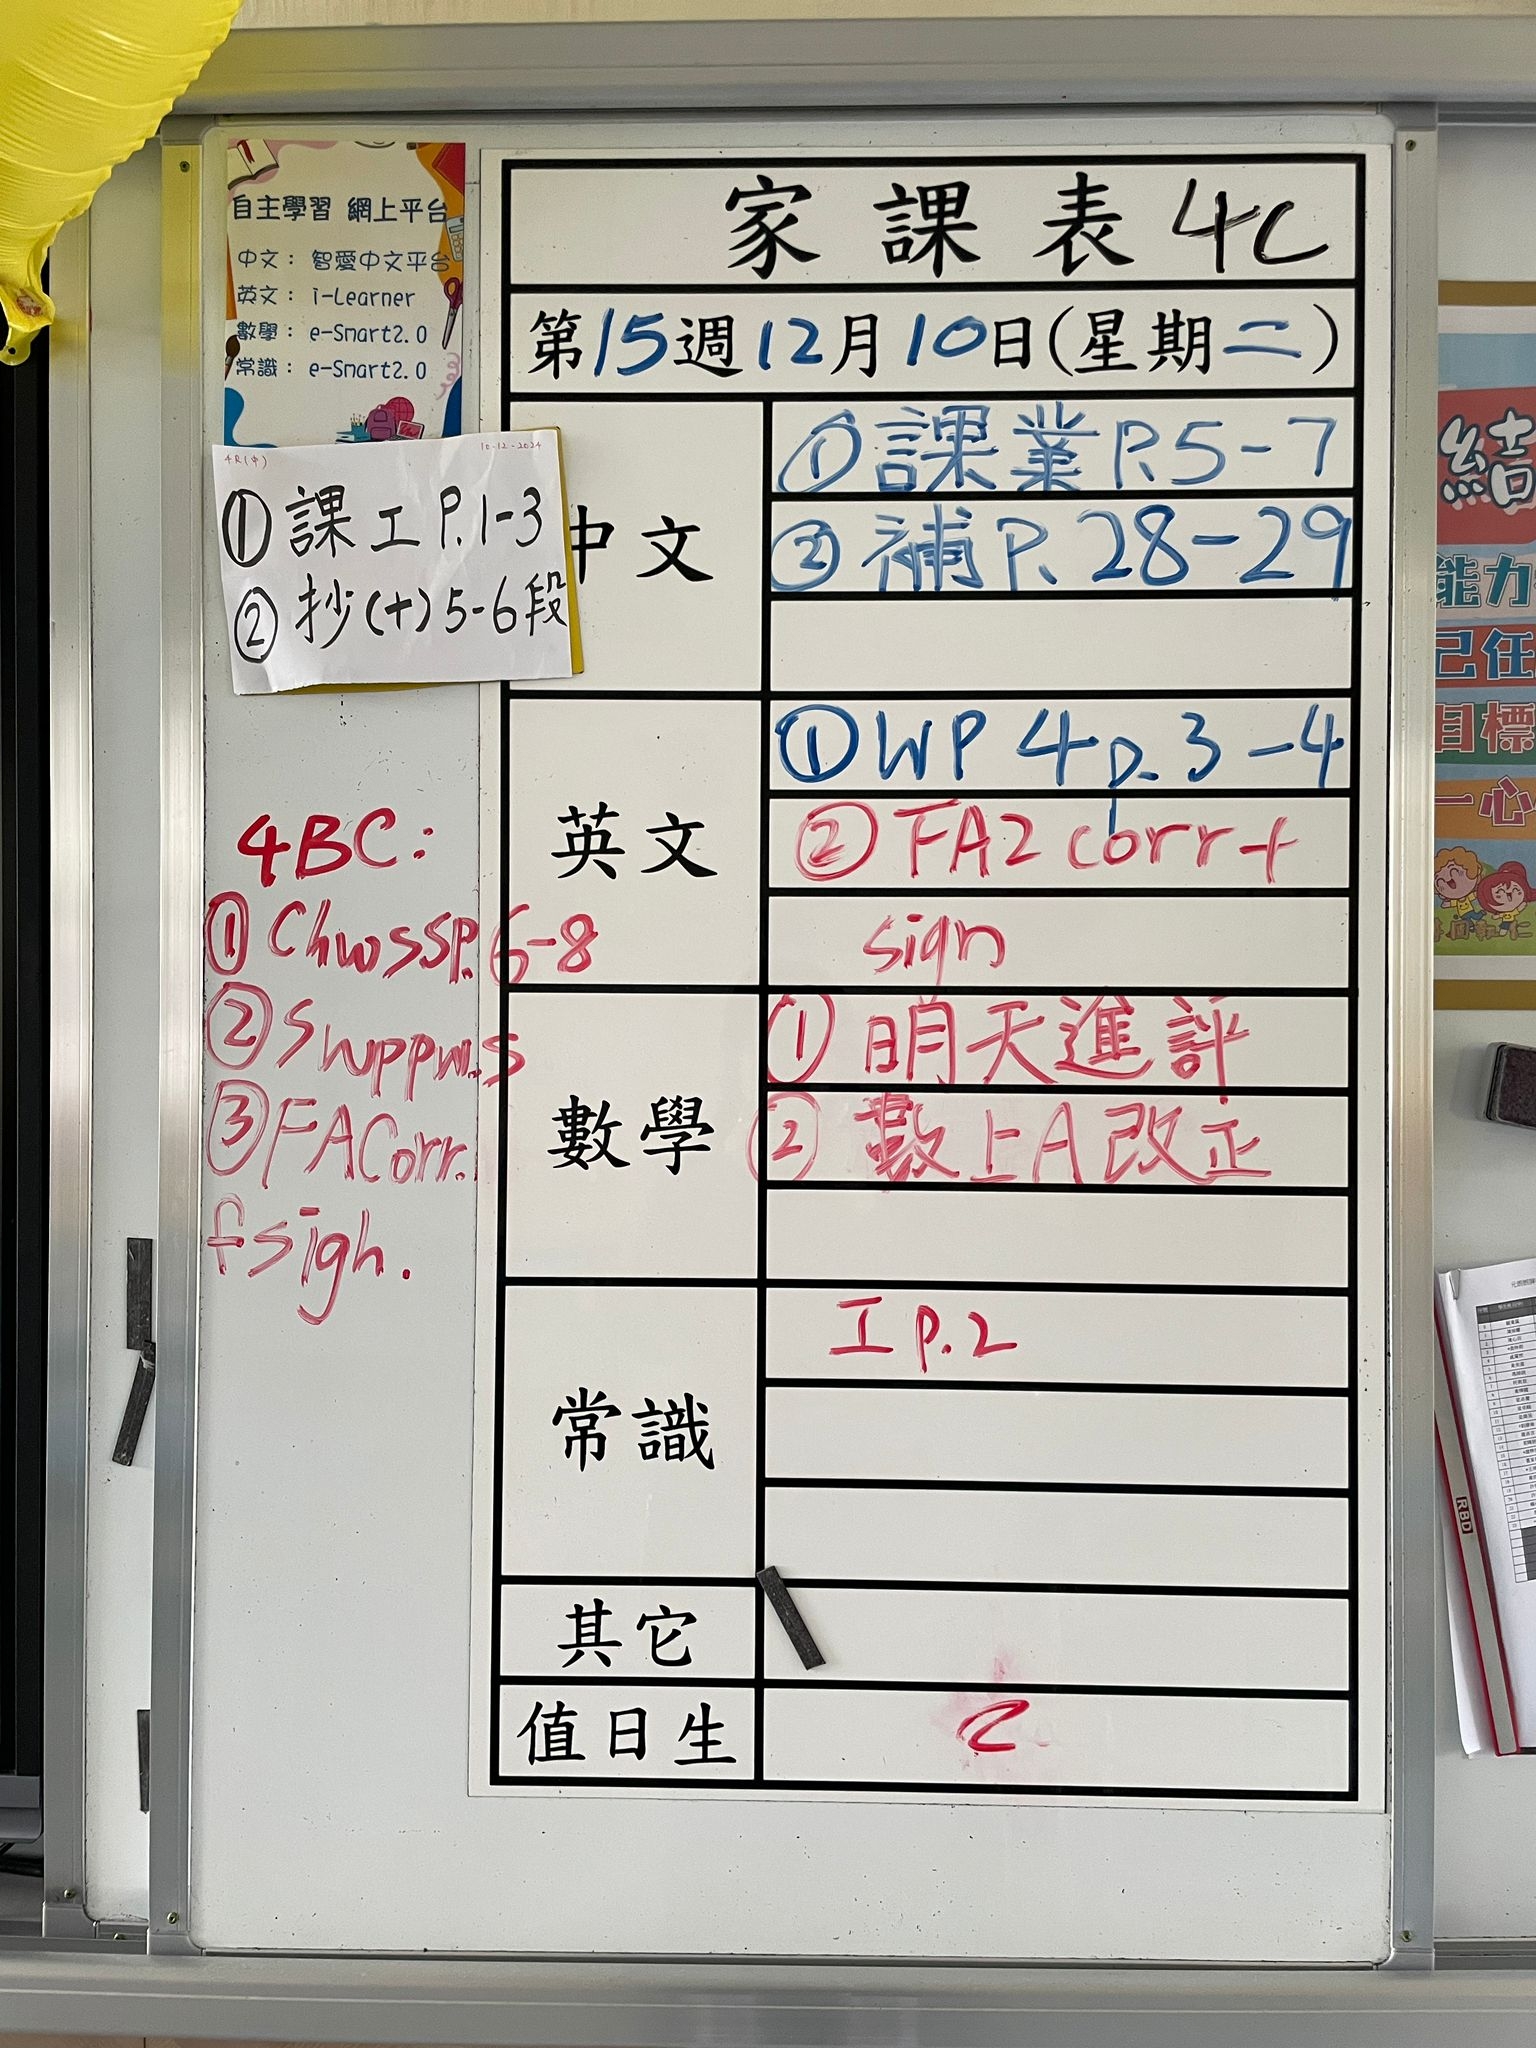 自主學習 網上平台
中文： 智愛中文平台
英文： i-Learner
數學： e-Smart2.0
常識： e-Smart2.0
10-12-2024
4R(中)
① 課工 P.1-3
② 抄(十)5-6段
4BC:
① Chwss P.6-8
② Suppw.s
③ FA Corr.
+sign.
家課表 4C
第15週12月10日(星期二)
中文
① 課業 P.5-7
② 補 P. 28-29
英文
① WP 4 p. 3-4
② FA2 corr +
sign
數學
① 明天進評
② 數上A改正
常識
工 p.2
其它
值日生
2
結
能力
己任
目標
一心
RBD